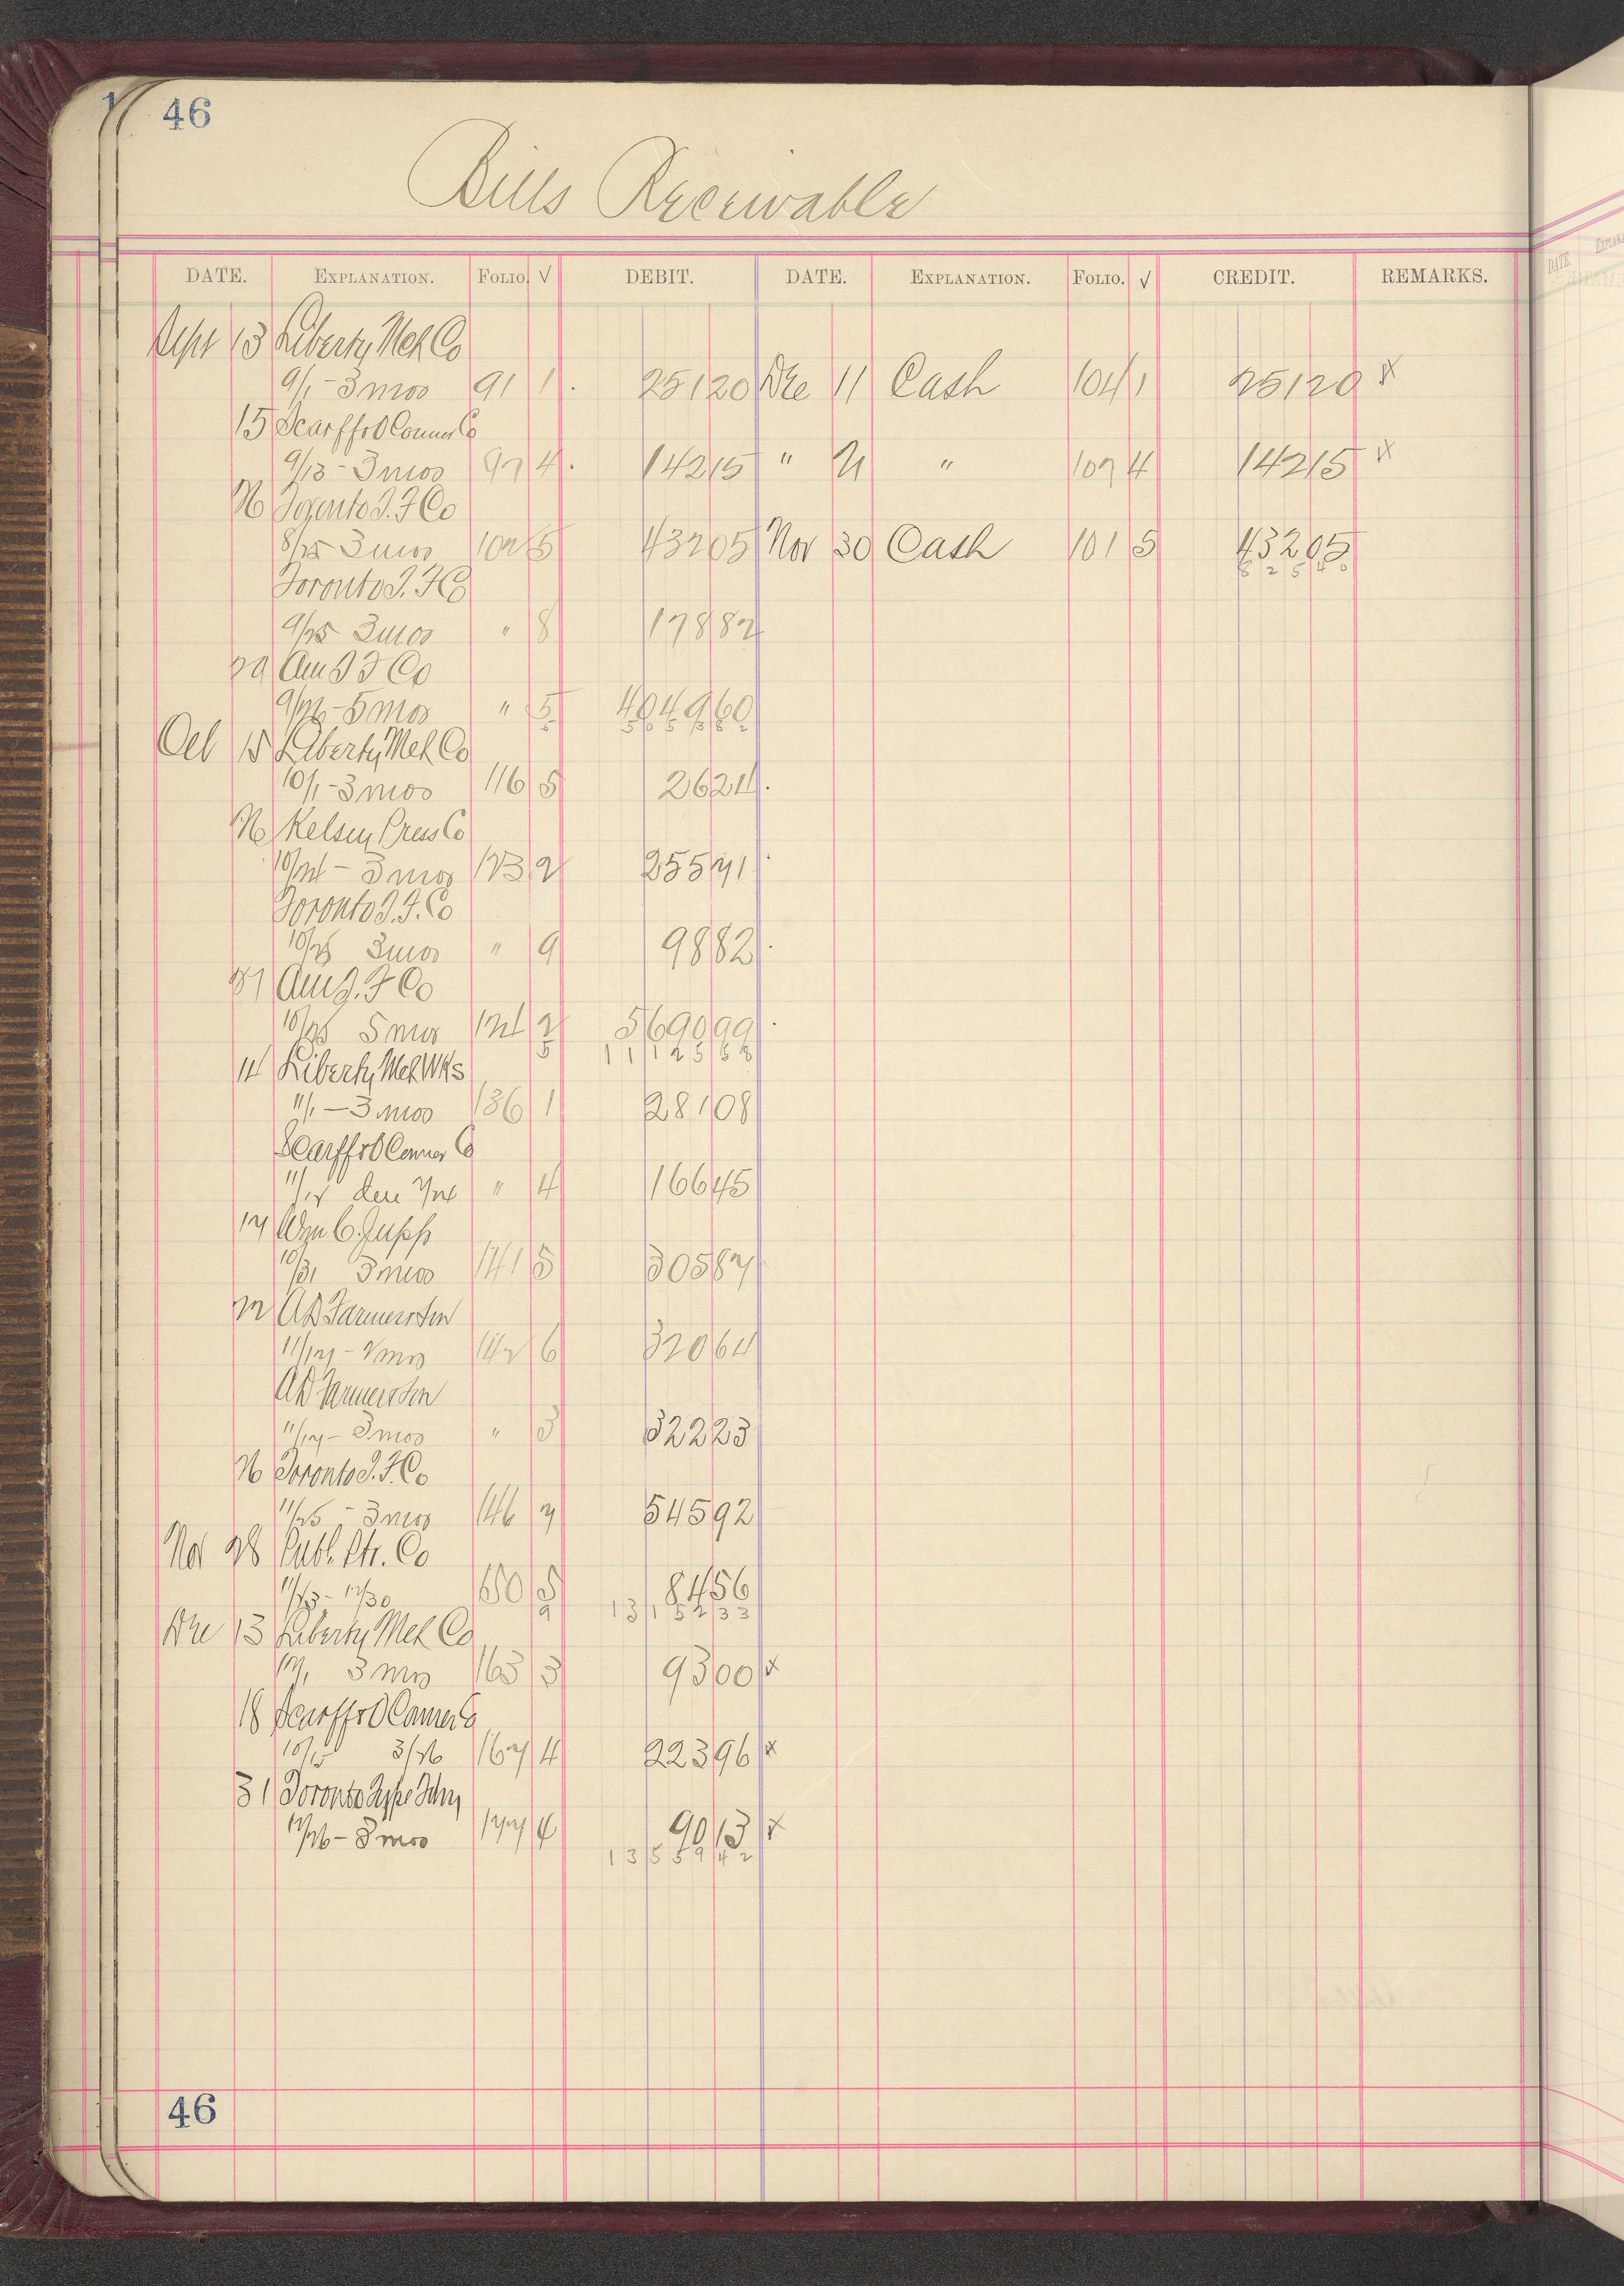 46
Bills Receivable
DATE. EXPLANATION. FOLIO. √ DEBIT. DATE. EXPLANATION. FOLIO. √ CREDIT. REMARKS.
Sept 13 Liberty Mch Co
9/1 - 3 mos 91 1 251 20 Dec 11 Cash 104 1 251 20 x
15 Scarff & O'Connor Co
9/13 - 3 mos 97 4 142 15 " 21 " 107 4 142 15 x
26 Toronto T. F Co
8/25 3 mos 102 5 432 05 Nov 30 Cash 101 5 432 05
8 2 5 4 0
Toronto T. F Co
9/25 3 mos " 8 178 82
29 Am T F Co
9/26 - 5 mos " 5 4049 60
5 0 5 3 8 2
Oct 15 Liberty Mch Co
10/1 - 3 mos 116 5 26 24
26 Kelsey Press Co
10/24 - 3 mos 123 2 255 71
Toronto T. F. Co
10/25 3 mos " 9 98 82
31 Am T. F Co
10/26 5 mos 124 2 5690 99
5 1 1 1 2 5 5 8
14 Liberty Mch Wks
11/1 - 3 mos 136 1 281 08
Scarff & O'Connor Co
" 4 166 45
17 Wm C. Jupp
10/31 3 mos 141 5 305 87
22 A D Farmer & Son
11/17 - 2 mos 142 6 320 64
A D Farmer & Son
11/17 - 3 mos " 3 322 23
26 Toronto T. F. Co
11/25 - 3 mos 146 7 545 92
Nov 28 Publ. Ptr. Co
11/23 - 12/30 150 5 84 56
9 1 3 1 5 2 3 3
Dec 13 Liberty Mch Co
12/1 3 mos 163 3 93 00 x
18 Scarff & O'Connor Co
3/26 167 4 223 96 x
31 Toronto Type Fdry
12/26 - 3 mos 177 4 90 13 x
1 3 5 5 9 4 2
46